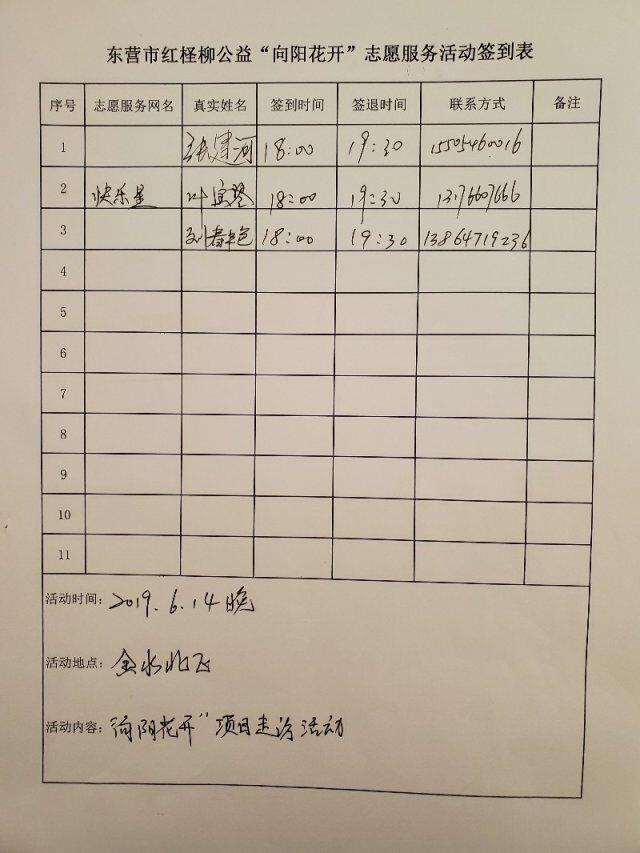 东营市红柽柳公益“向阳花开”志愿服务活动签到表
序号 志愿服务网名 真实姓名 签到时间 签退时间 联系方式 备注
1 张建河 18:00 19:30 15505460016
2 快乐星 叶宝琴 18:00 19:30
3 刘春艳 18:00 19:30 13864719236
4
5
6
7
8
9
10
11
活动时间: 2019.6.14晚
活动地点: 金水北
活动内容: 向阳花开”项目走访活动